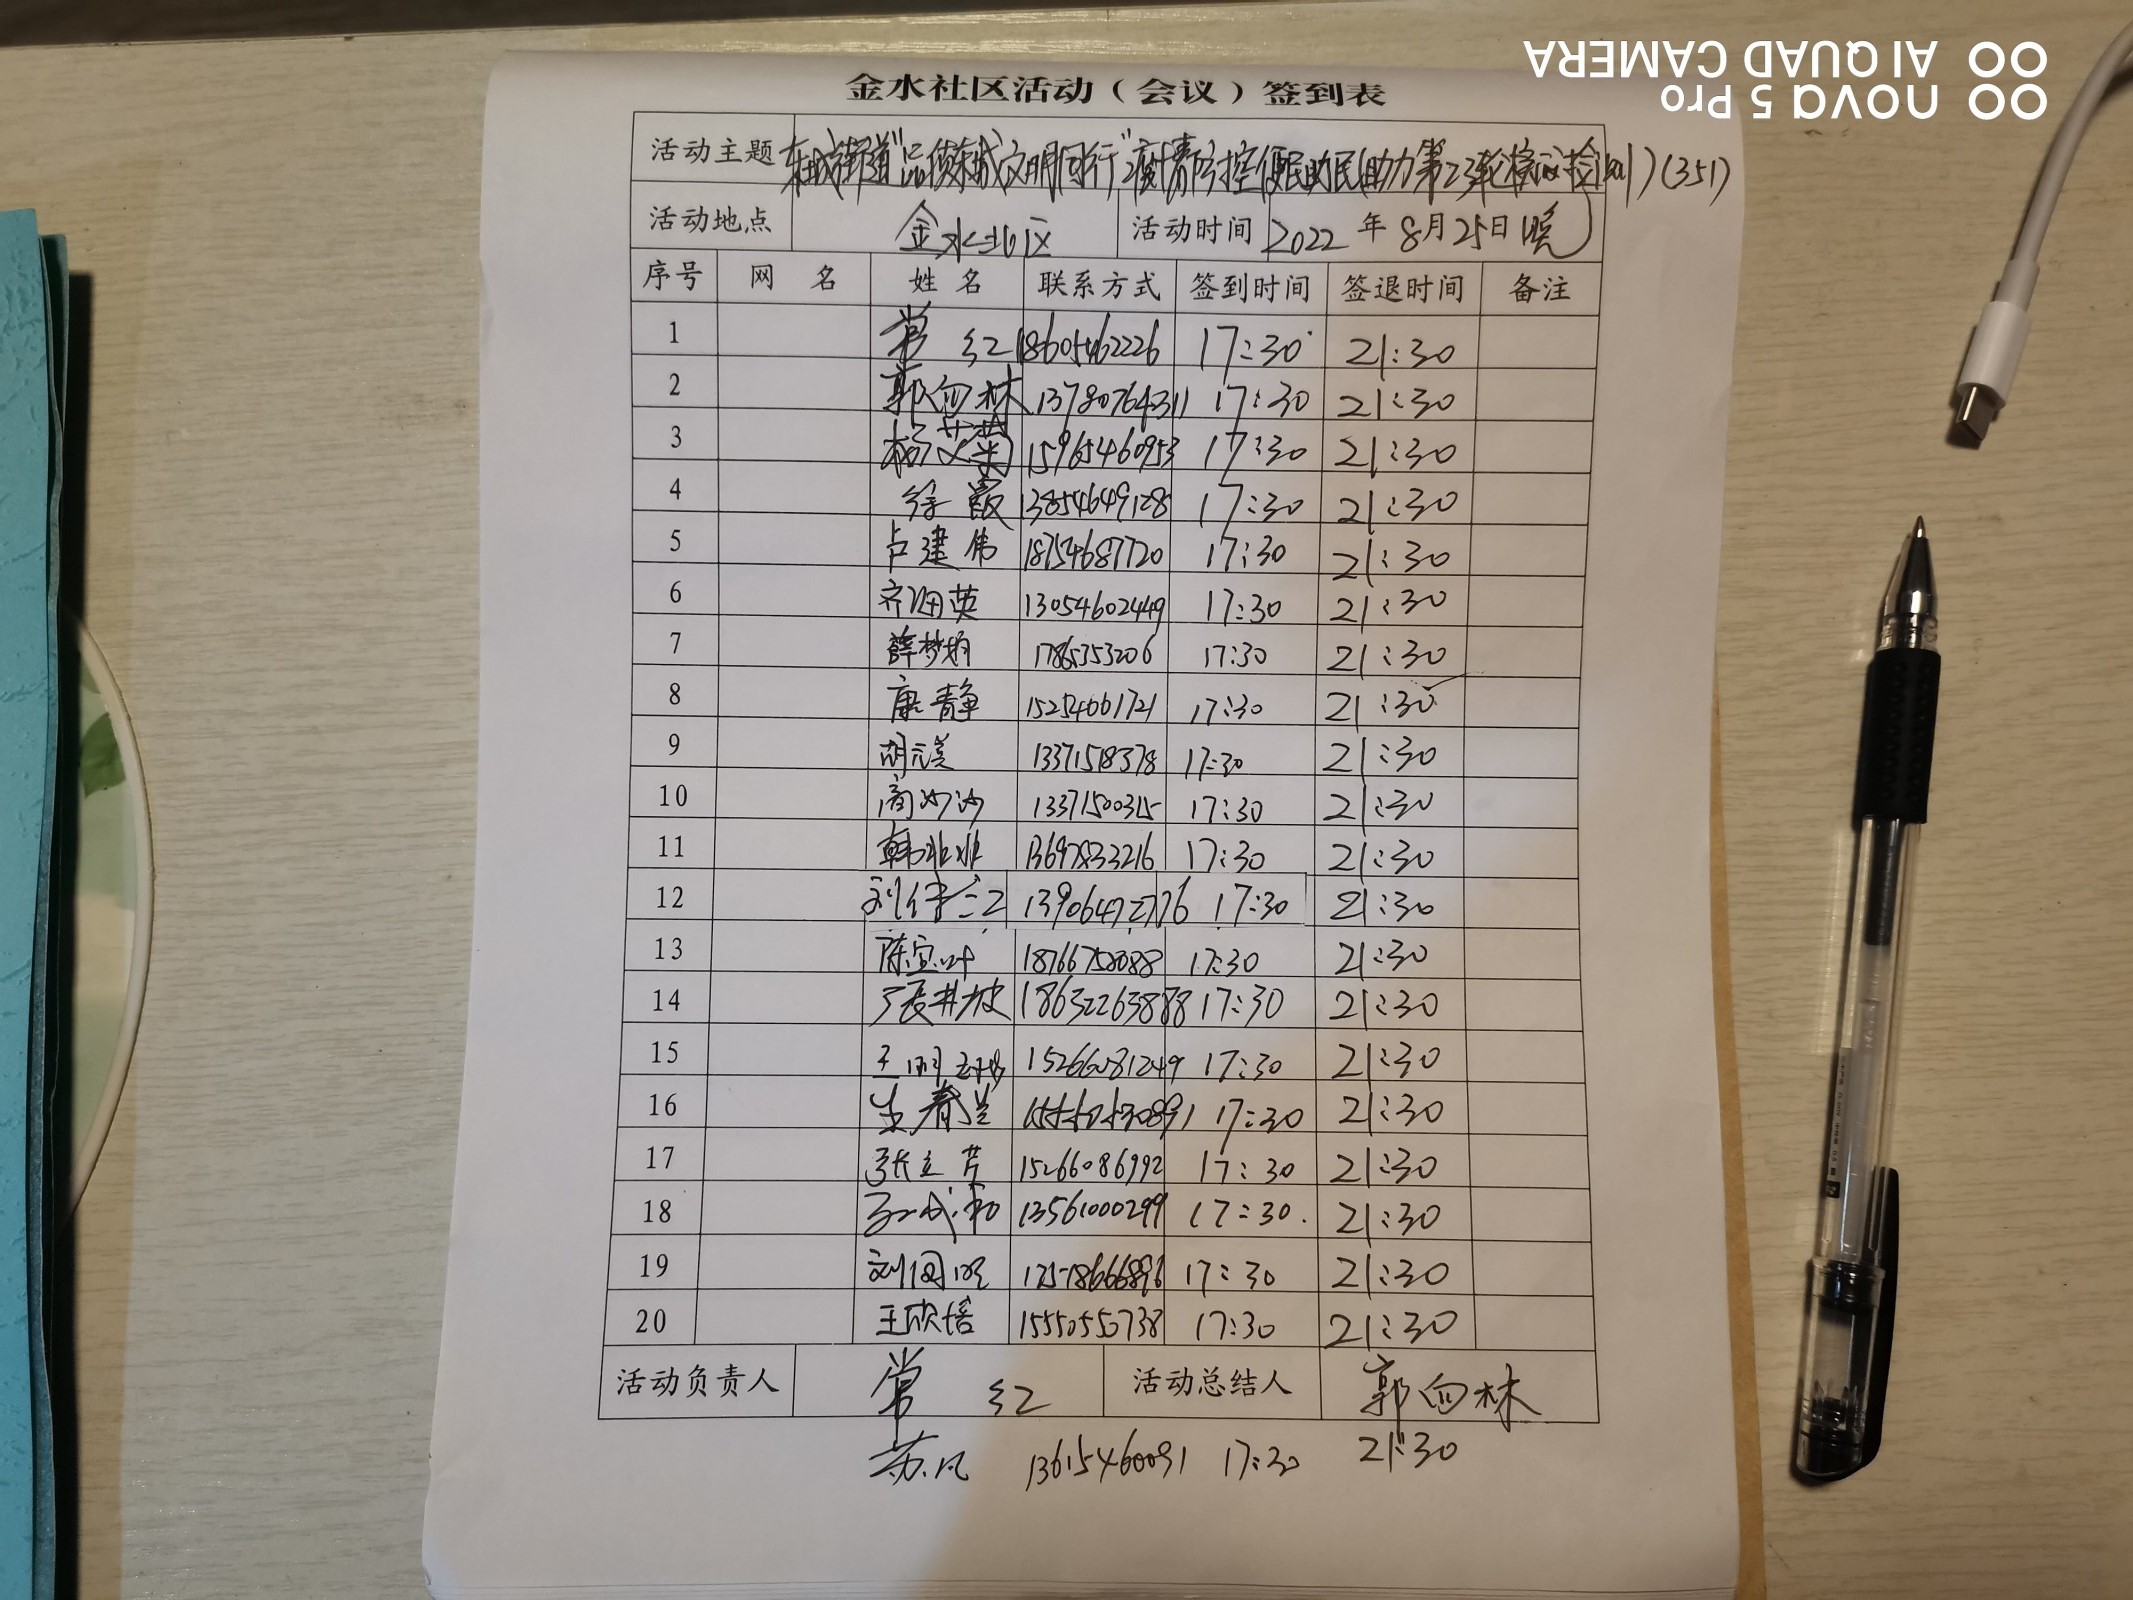 金水社区活动（会议）签到表
活动主题 东城街道"品质东城文明同行"疫情防控便民助民(助力第23轮核酸检测)(351)
活动地点 金水社区 活动时间 2022年8月25日晚
序号 网 名 姓 名 联系方式 签到时间 签退时间 备注
1 常红 18605462226 17:30 21:30
2 郭向林 13780764311 17:30 21:30
3 杨艾菊 15965460953 17:30 21:30
4 徐霞 13854649128 17:30 21:30
5 卢建伟 18754687720 17:30 21:30
6 齐英 13054602449 17:30 21:30
7 薛梦娟 17865353206 17:30 21:30
8 康静 15254661721 17:30 21:30
9 胡元美 13371518378 17:30 21:30
10 商沙沙 13371500315 17:30 21:30
11 韩 17:30 21:30
12 刘 13906472776 17:30 21:30
13 陈宝叶 17:30 21:30
14 张井坡 18632263888 17:30 21:30
15 王丽 15266081249 17:30 21:30
16 春兰 17:30 21:30
17 张立芹 15266086992 17:30 21:30
18 成和 13561000299 17:30 21:30
19 刘国 17:30 21:30
20 王欣蓓 15550550738 17:30 21:30
活动负责人 常红 活动总结人 郭向林
苏凡 13615460091 17:30 21:30
nova 5 Pro
AI QUAD CAMERA